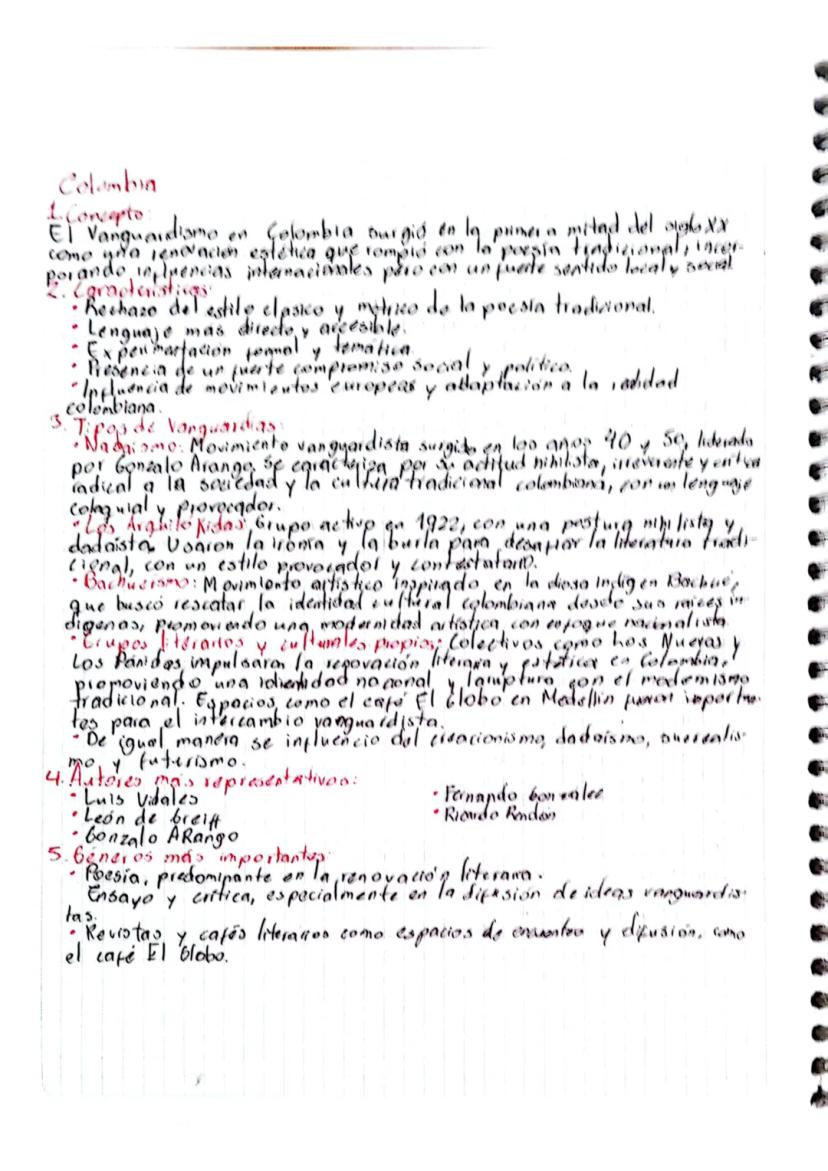 Colombia
1. Concepto:
El Vanguardismo en Colombia surgió en la primera mitad del siglo XX
como una renovación estética que rompió con la poesía tradicional, incor-
porando influencias internacionales pero con un fuerte sentido local y social
2. Características:
· Rechazo del estilo clásico y métrico de la poesía tradicional.
· Lenguaje mas directo y accesible.
· Experimentación formal y temática
· Presencia de un fuerte compromiso social y político.
· Influencia de movimientos europeas y adaptación a la realidad
colombiana.
3. Tipos de Vanguardias:
· Nadaismo: Movimiento vanguardista surgido en los años 40 y 50, liderado
por Gonzalo Arango. Se caracteriza por su actitud nihilista, irreverente y critica
radical a la sociedad y la cultura tradicional colombiana, con un lenguaje
coloquial y provocador.
· Los Arquilókidas: Grupo activo en 1922, con una postura nihilista y
dadaista. Usaron la ironía y la burla para desafiar la literatura tradi-
cional, con un estilo provocador y contestatario.
· Bachuesismo: Movimiento artístico inspirado en la diosa indigen Bachué,
que buscó rescatar la identidad cultural colombiana desde sus raices in
digenas, promoviendo una modernidad artística con enfoque nacionalista
· Grupos literarios y culturales propios: Colectivos como Los Nuevos y
Los Pánidas impulsaron la renovación literaria y estética en Colombia,
promoviendo una identidad nacional y la ruptura con el modernismo
tradicional. Espacios como el café El Globo en Medellín fueron importan-
tes para el intercambio vanguardista.
· De igual manera se influencio del creacionismo, dadaísmo, surrealis-
mo y futurismo.
4. Autores más representativos:
· Luis Vidales
· León de Greiff
· Gonzalo ARango
· Fernando Gonzalez
· Ricardo Rendón
5. Géneros más importantes:
· Poesía, predominante en la renovación literaria.
Ensayo y crítica, especialmente en la difusión de ideas vanguardis-
tas.
· Revistas y cafés literarios como espacios de encuentro y difusión, como
el café El Globo.